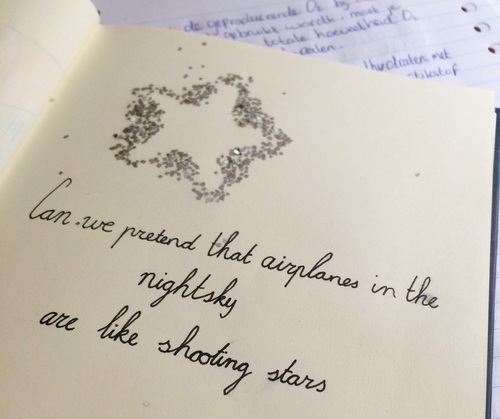 de geproduceerde O₂ by
gebruikt wordt, moet je
totale hoeveelheid O₂
Can we pretend that airplanes in the
nightsky
are like shooting stars